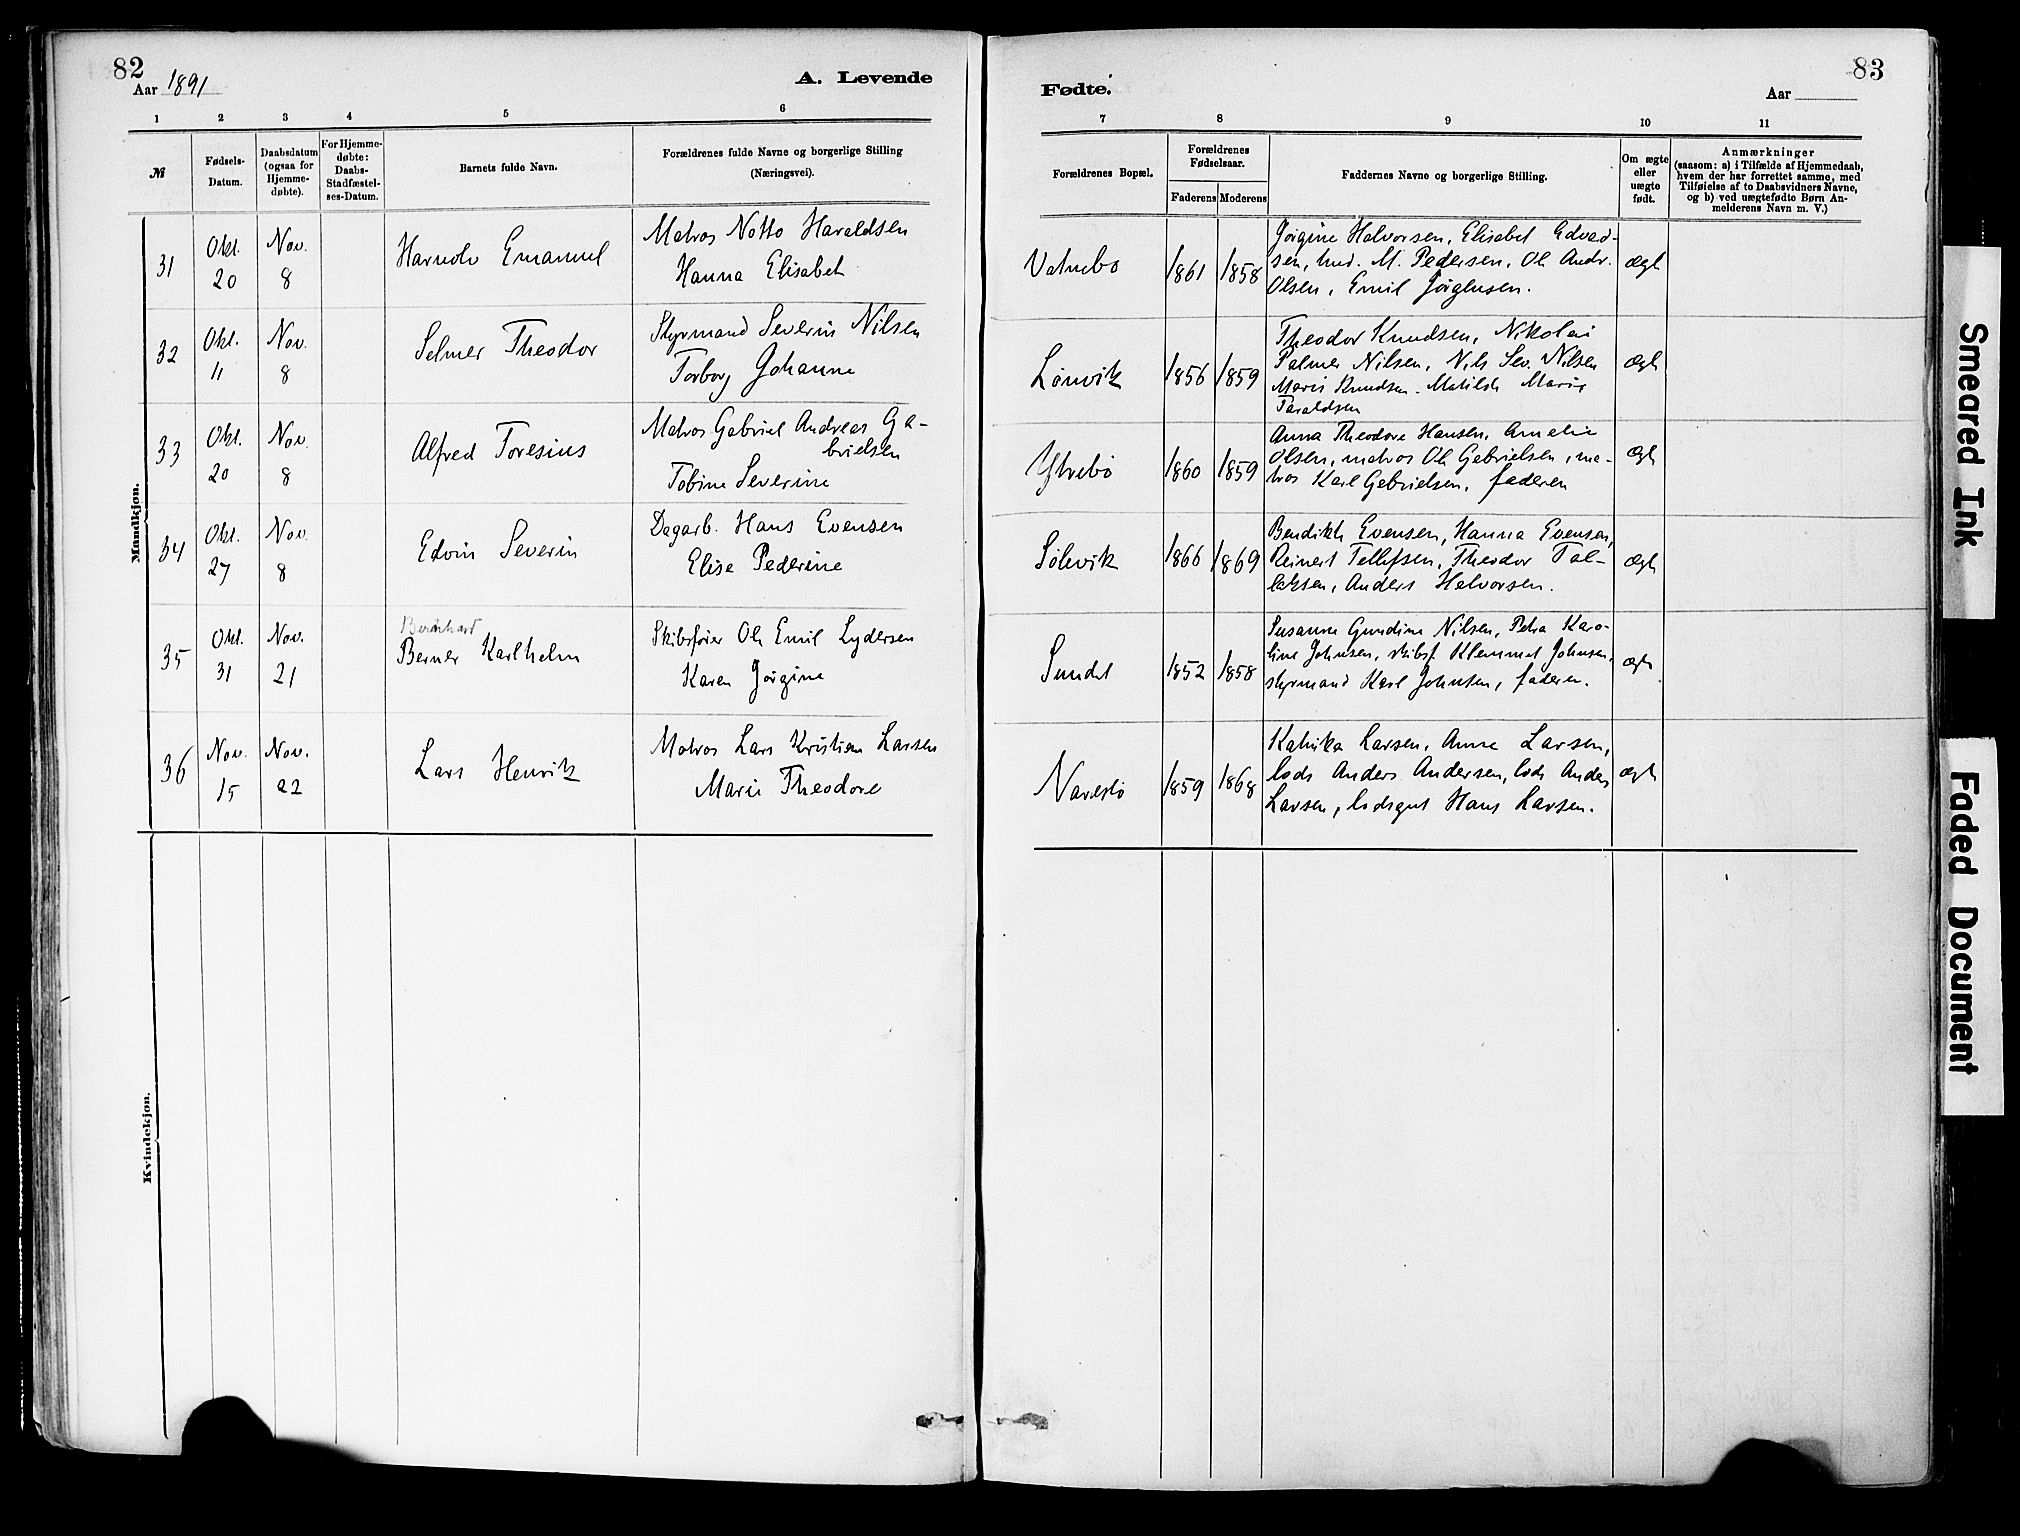 82
Aar 1891
A. Levende
1 2 3 4 5 6
№
Fødsels-Datum.
Daabsdatum (ogsaa for Hjemme-døbte).
For Hjemme-døbte: Daabs-Stadfæstel-ses-Datum.
Barnets fulde Navn.
Forældrenes fulde Navne og borgerlige Stilling
(Næringsvei).
Mandkjøn.
31 Okt. 20 Nov. 8
Emanuel
Matros Notto Haraldsen
Hanna Elisabet
32 Okt. 11 Nov. 8
Selmer Theodor
Styrmand Severin Nilsen
Torborg Johanne
33 Okt. 20 Nov. 8
Alfred Toresius
Matros Gabriel Andreas Ga-
brielsen
Tobine Severine
34 Okt. 27 Nov. 8
Edvin Severin
Dagarb. Hans Evensen
Elise Pederine
35 Okt. 31 Nov. 21
Bernhard
Berner Karlhelm
Skibsfører Ole Emil Lydersen
Karen Jørgine
36 Nov. 15 Nov. 22
Lars Henrik
Matros Lars Kristian Larsen
Marie Theodore
Kvindekjøn.
83
Fødte.
Aar
7 8 9 10 11
Forældrenes Bopæl.
Forældrenes Fødselsaar.
Faderens Moderens
Faddernes Navne og borgerlige Stilling.
Om ægte eller uægte født.
Anmærkninger
(saasom: a) i Tilfælde af Hjemmedaab,
hvem der har forrettet samme, med
Tilføielse af to Daabsvidners Navne,
og b) ved uægtefødte Børn An-
melderens Navn m. V.)
Vatnebø 1861 1858
Jørgine Halvorsen, Elisabet Edvard-
sen, M. Pedersen, Ole Andr.
Olsen, Emil Jørgensen.
ægte
Lønvik 1856 1859
Theodor Knudsen, Nikolai
Palmer Nilsen, Nils Sev. Nilsen
Marie Knudsen. Matilde Marie
Taraldsen
ægte
Ytrebø 1860 1859
Anna Theodore Hansen, Amelie
Olsen, matros Ole Gabrielsen, ma-
tros Karl Gabrielsen, faderen
ægte
Sølevik 1866 1869
Bendikte Evensen, Hanna Evensen,
Reinert Tellefsen, Theodor Tal-
laksen, Anders Halvorsen.
ægte
Sundet 1852 1858
Susanne Gundine Nilsen, Petra Karo-
line Johnsen, skibsf. Klemmet Johnsen,
styrmand Karl Johnsen, faderen.
ægte
Narestø 1859 1868
Katrika Larsen, Anne Larsen,
lods Anders Andersen, lods Anders
Larsen, lodsgut Hans Larsen.
ægte
Smeared Ink
Faded Document